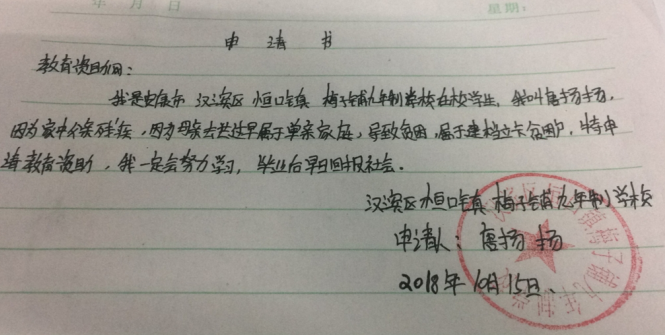 年 月 日 星期：
申 请 书
教育资助们：
我是安康市 汉滨区 恒口镇 梅子铺九年制学校在校学生，我叫唐扬扬，
因为家中条件，因为母亲去世过早属于单亲家庭，导致贫困，属于建档立卡贫困户，特申
请教育资助，我一定会努力学习，毕业后早日回报社会。
汉滨区恒口镇 梅子铺九年制学校
申请人：唐扬 扬
2018年 10月 15日.